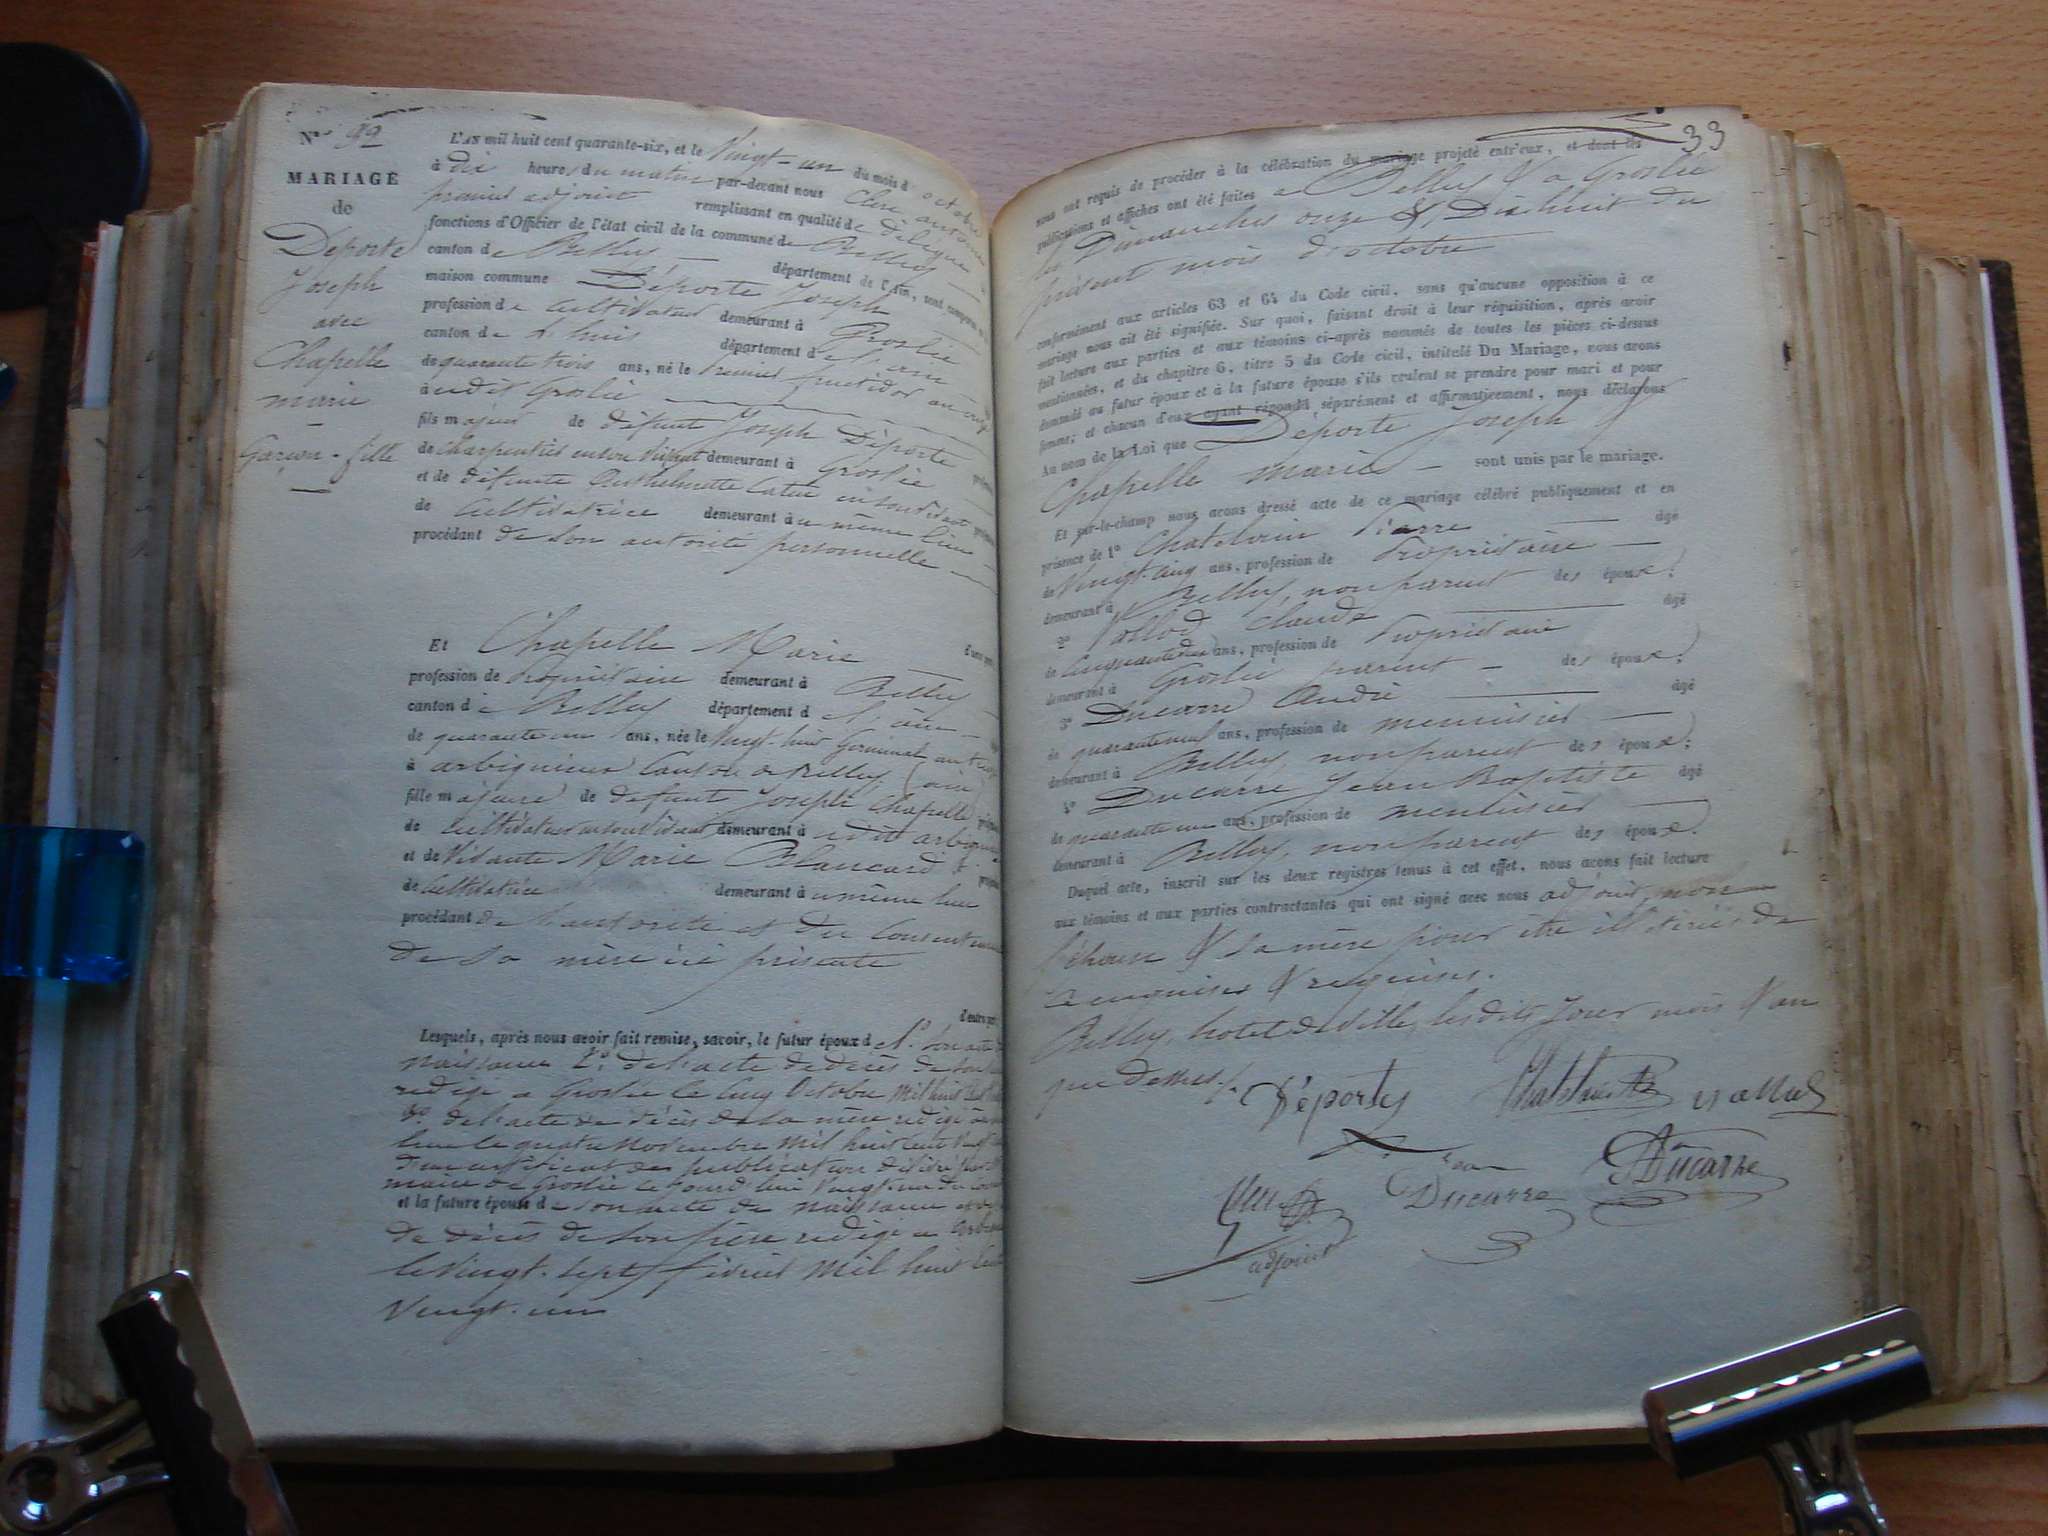 N°
MARIAGE
de
Déporte
Joseph
avec
Chapelle
marie
Garçon - fille
L'AN mil huit cent quarante-six, et le Vingt-un du mois d'octobre
à dix heures du matin par-devant nous Clerc antoine
premier adjoint remplissant en qualité de délégué
fonctions d'Officier de l'état civil de la commune de Belley
canton de Belley département de l'Ain, sont comparus
maison commune Déporte Joseph
profession de Cultivateur demeurant à Groslée
canton de Lhuis département de l'ain
de quarante trois ans, né le premier fructidor an
à udit Groslée
fils majeur de défunt Joseph Déporte
de Charpentier en son vivant demeurant à Groslée
et de défunte Anthelmette en son vivant
de Cultivatrice demeurant au même lieu
procédant de son autorité personnelle
d'une part
Et Chapelle Marie
profession de Propriétaire demeurant à Belley
canton de Belley département de l'ain
de quarante un ans, née le Vingt-huit Germinal an
à arbignieu Canton de Belley (ain)
fille majeure de défunt Joseph Chapelle
de Cultivateur en son vivant demeurant à udit arbignieu
et de Vivante Marie Blancard
de Cultivatrice demeurant au même lieu
procédant de l'autorité et du Consentement
de sa mère ici présente
d'autre part
Lesquels, après nous avoir fait remise, savoir, le futur époux de 1° son acte de
naissance 2° de l'acte de décès de son
redigé a Groslée le Cinq Octobre Mil huit Cent
3° de l'acte de décès de sa mère redigé au
lieu le quatre Novembre Mil huit Cent Vingt
d'un certificat de publication délivré par
maire de Groslée le jourd'hui Vingt-un du
et la future épouse de son acte de naissance et
de décès de son père redigé a
le Vingt-sept février Mil huit Cent
Vingt-un
33
nous ont requis de procéder à la célébration du mariage projeté entr'eux, et dont les
publications et affiches ont été faites a Belley & a Groslée
les Dimanches onze & Dix huit du
présent mois d'octobre
conformément aux articles 63 et 64 du Code civil, sans qu'aucune opposition à ce
mariage nous ait été signifiée. Sur quoi, faisant droit à leur réquisition, après avoir
fait lecture aux parties et aux témoins ci-après nommés de toutes les pièces ci-dessus
mentionnées, et du chapitre 6, titre 5 du Code civil, intitulé Du Mariage, nous avons
demandé au futur époux et à la future épouse s'ils veulent se prendre pour mari et pour
femme; et chacun d'eux ayant répondu séparément et affirmativement, nous déclarons
Au nom de la Loi que Déporte Joseph &
Chapelle marie sont unis par le mariage.
Et sur-le-champ nous avons dressé acte de ce mariage célébré publiquement et en
présence de 1° Chatelain Pierre âgé
de Vingt-cinq ans, profession de Propriétaire
demeurant à Belley, non parent des époux;
2° Vallod Claude âgé
de Cinquante deux ans, profession de Propriétaire
demeurant à Groslée parent des époux;
3° Ducarre André âgé
de quarante neuf ans, profession de menuisier
demeurant à Belley, non parent des époux;
4° Ducarre Jean Baptiste âgé
de quarante un ans, profession de menuisier
demeurant à Belley, non parent des époux.
Duquel acte, inscrit sur les deux registres tenus à cet effet, nous avons fait lecture
aux témoins et aux parties contractantes qui ont signé avec nous adjoint, non
l'épouse & sa mère pour être illitérées de
ce enquises & requises.
Belley, hotel de Ville, lesdits jour mois & an
que dessus.
Déporte Chatelain Vallod
Clerc Jean Ducarre ADucarre
adjoint